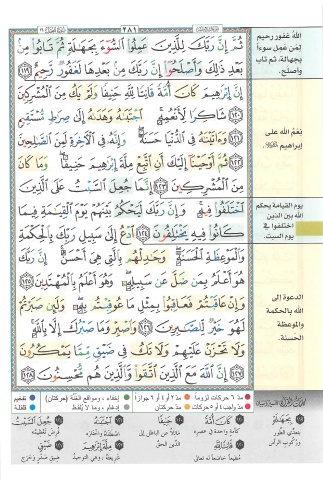 ٢٨١
ثُمَّ إِنَّ رَبَّكَ لِلَّذِينَ عَمِلُوا۟ ٱلسُّوٓءَ بِجَهَـٰلَةٍ ثُمَّ تَابُوا۟ مِنۢ
بَعْدِ ذَٰلِكَ وَأَصْلَحُوٓا۟ إِنَّ رَبَّكَ مِنۢ بَعْدِهَا لَغَفُورٌ رَّحِيمٌ ١١٩
إِنَّ إِبْرَٰهِيمَ كَانَ أُمَّةً قَانِتًا لِّلَّهِ حَنِيفًا وَلَمْ يَكُ مِنَ ٱلْمُشْرِكِينَ
١٢٠ شَاكِرًا لِّأَنْعُمِهِ ۚ ٱجْتَبَىٰهُ وَهَدَىٰهُ إِلَىٰ صِرَٰطٍ مُّسْتَقِيمٍ
١٢١ وَءَاتَيْنَـٰهُ فِى ٱلدُّنْيَا حَسَنَةً ۖ وَإِنَّهُۥ فِى ٱلْـَٔاخِرَةِ لَمِنَ ٱلصَّـٰلِحِينَ
١٢٢ ثُمَّ أَوْحَيْنَآ إِلَيْكَ أَنِ ٱتَّبِعْ مِلَّةَ إِبْرَٰهِيمَ حَنِيفًا ۖ وَمَا كَانَ
مِنَ ٱلْمُشْرِكِينَ ١٢٣ إِنَّمَا جُعِلَ ٱلسَّبْتُ عَلَى ٱلَّذِينَ
ٱخْتَلَفُوا۟ فِيهِ ۚ وَإِنَّ رَبَّكَ لَيَحْكُمُ بَيْنَهُمْ يَوْمَ ٱلْقِيَـٰمَةِ فِيمَا
كَانُوا۟ فِيهِ يَخْتَلِفُونَ ١٢٤ ٱدْعُ إِلَىٰ سَبِيلِ رَبِّكَ بِٱلْحِكْمَةِ
وَٱلْمَوْعِظَةِ ٱلْحَسَنَةِ ۖ وَجَـٰدِلْهُم بِٱلَّتِى هِىَ أَحْسَنُ ۚ إِنَّ رَبَّكَ
هُوَ أَعْلَمُ بِمَن ضَلَّ عَن سَبِيلِهِۦ ۖ وَهُوَ أَعْلَمُ بِٱلْمُهْتَدِينَ ١٢٥
وَإِنْ عَاقَبْتُمْ فَعَاقِبُوا۟ بِمِثْلِ مَا عُوقِبْتُم بِهِۦ ۖ وَلَئِن صَبَرْتُمْ
لَهُوَ خَيْرٌ لِّلصَّـٰبِرِينَ ١٢٦ وَٱصْبِرْ وَمَا صَبْرُكَ إِلَّا بِٱللَّهِ ۚ
وَلَا تَحْزَنْ عَلَيْهِمْ وَلَا تَكُ فِى ضَيْقٍ مِّمَّا يَمْكُرُونَ
١٢٧ إِنَّ ٱللَّهَ مَعَ ٱلَّذِينَ ٱتَّقَوا۟ وَّٱلَّذِينَ هُم مُّحْسِنُونَ ١٢٨
الله غفور رحيم
لمن عمل سوءاً
بجهالة، ثم تاب
وأصلح.
نعم الله على
إبراهيم
يوم القيامة يحكم
الله بين الذين
اختلفوا في
يوم السبت.
الدعوة إلى
الله بالحكمة
والموعظة
الحسنة.
مد ٦ حركات لزوماً
مد ٢ أو ٤ أو ٦ جوازاً
إخفاء، ومواقع الغُنَّة (حركتان)
تفخيم
مد واجب ٤ أو ٥ حركات
مد حركتان
إدغام، وما لا يُلفظ
قلقلة